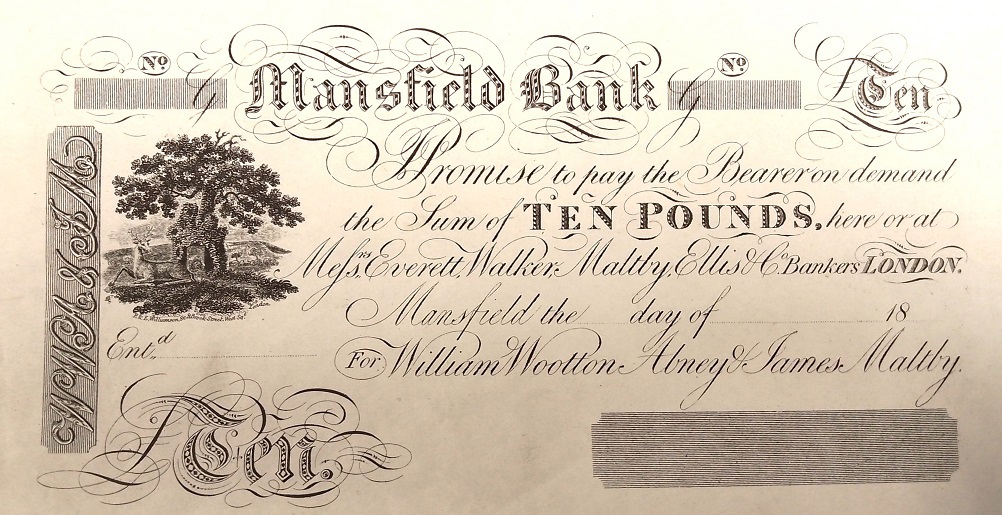 No Mansfield Bank No £Ten
I Promise to pay the Bearer on demand
the Sum of TEN POUNDS, here or at
Mefsrs. Everett, Walker, Maltby, Ellis & Co. Bankers LONDON.
Mansfield the day of 18
Entd.
For William Wootton Abney & James Maltby.
£Ten.
WWA & JM